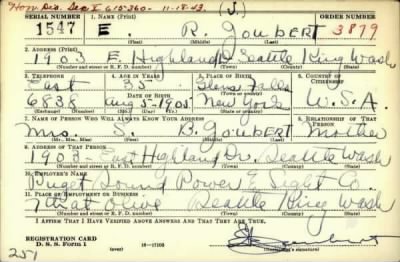 Hon. Dis. Sec X 615-360- 11-18-43. (J.)
SERIAL NUMBER 1. NAME (Print) ORDER NUMBER
1547 E. R. JOUBERT 3879
(First) (Middle) (Last)
2. ADDRESS (Print)
1903 E. Highland Dr Seattle King Wash
(Number and street or R. F. D. number) (Town) (County) (State)
3. TELEPHONE 4. AGE IN YEARS 5. PLACE OF BIRTH 6. COUNTRY OF CITIZENSHIP
East 35 Glens Falls
DATE OF BIRTH (Town or county)
6838 Aug 5-1905 New York U.S.A.
(Exchange) (Number) (Mo.) (Day) (Yr.) (State or country)
7. NAME OF PERSON WHO WILL ALWAYS KNOW YOUR ADDRESS 8. RELATIONSHIP OF THAT PERSON
Mrs. S. B. JOUBERT Mother
(Mr., Mrs., Miss) (First) (Middle) (Last)
9. ADDRESS OF THAT PERSON
1903 - East Highland Dr. Seattle Wash
(Number and street or R. F. D. number) (Town) (County) (State)
10. EMPLOYER'S NAME
Puget Sound Power & Light Co.
11. PLACE OF EMPLOYMENT OR BUSINESS
7th at Olive Seattle King Wash
(Number and street or R. F. D. number) (Town) (County) (State)
I AFFIRM THAT I HAVE VERIFIED ABOVE ANSWERS AND THAT THEY ARE TRUE.
REGISTRATION CARD
D. S. S. Form 1 16-17105 (Registrant's signature)
251